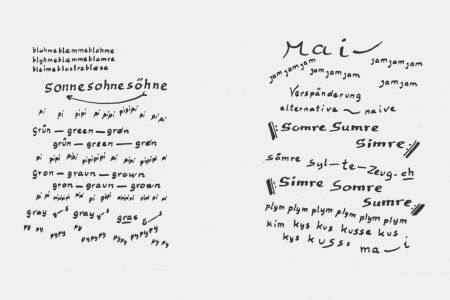 bluhmeblæmmeblohme
blyhmeblæmmeblomre
bleimeblustreblæse
sonnesohnesöhne
pi pi pipi pi pipi pipipi pi pi pi
grün — green — grøn
grün — green — grøn
pi pipi pi pipi pipipipi pi pipi pipi pi
gron — graun — grown
gron — graun — grown
gray — s gray — s gras —
py py pypy py pypypy pypy pypypy py
Mai —
jamjamjam jamjamjam jamjamjam
jamjamjam jamjamjam
Verspänderung
alternative ~ naive
Somre Sumre
Simre
sömre Syl — te — Zeug-ch
Simre Somre
Sumre
plym plym plym plym plym plym
kim kys kus kusse kus
kys kuss
ma — i